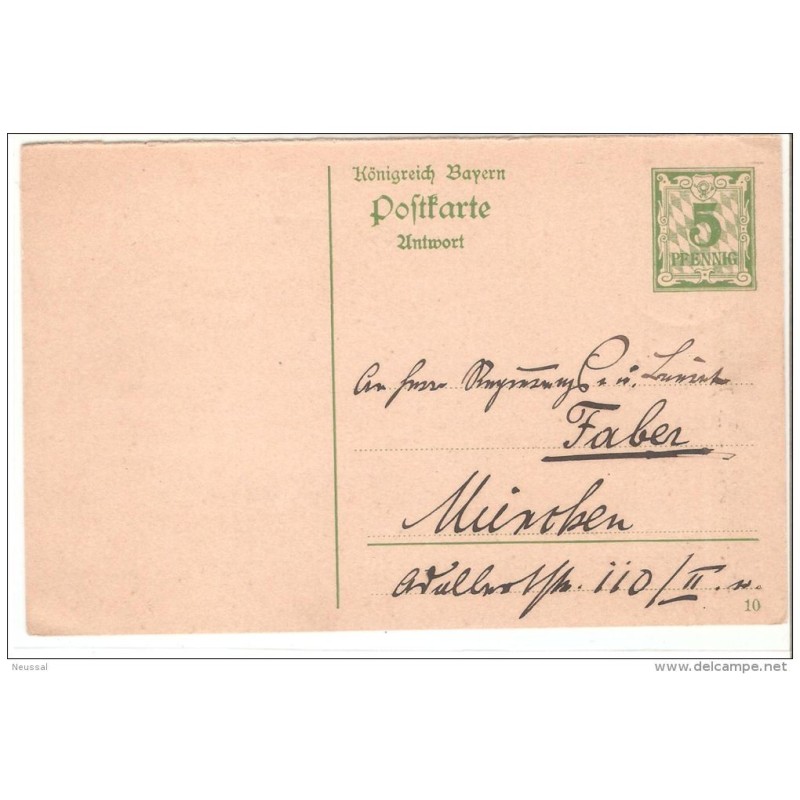 Königreich Bayern
Postkarte
Antwort
5
PFENNIG
An Herrn Regierungs- u. Baurat
Faber
München
110/II. r.
10
Neussal
www.delcampe.net